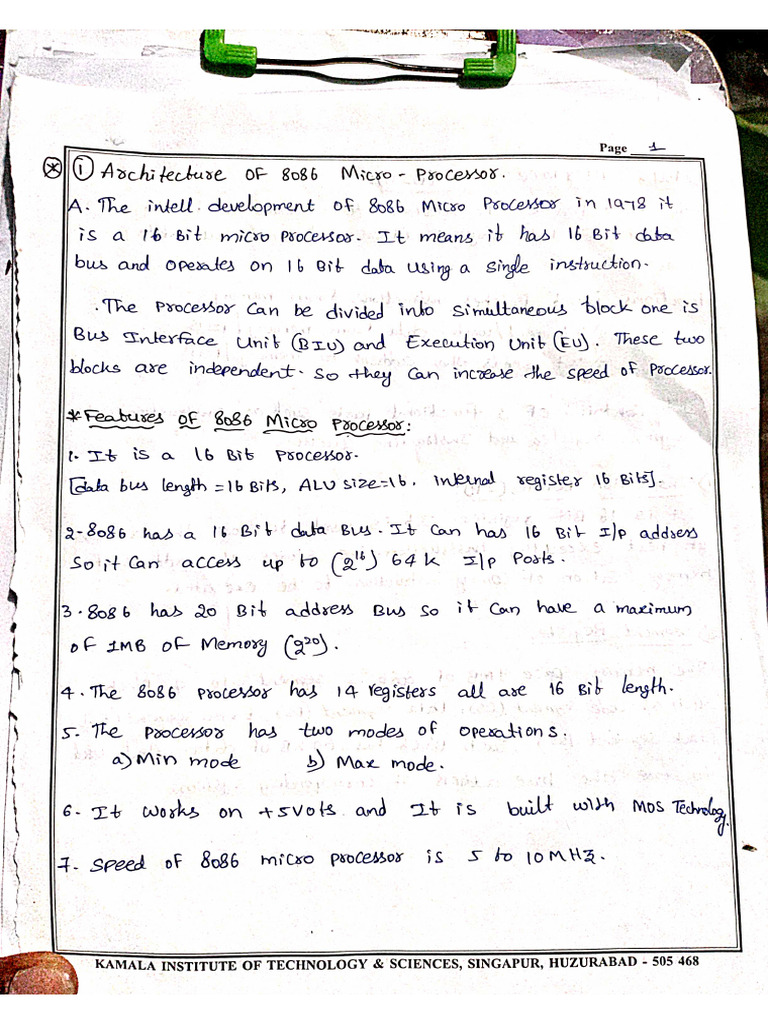 Page 1
* 1 Architecture OF 8086 Micro-Processor.
A. The intell development of 8086 Micro Processor in 1978 it
is a 16 Bit micro processor. It means it has 16 Bit data
bus and operates on 16 Bit data using a single instruction.
. The Processor can be divided into simultaneous block one is
Bus Interface Unit (BIU) and Execution Unit (EU). These two
blocks are independent. So they can increase the speed of Processor.
* Features OF 8086 Micro Processor:
1. It is a 16 Bit Processor.
[data bus length = 16 Bits, ALU size=16. internal register 16 Bits].
2-8086 has a 16 Bit data Bus. It can has 16 Bit I/p address
So it can access up to (2^16) 64K I/p Ports.
3. 8086 has 20 Bit address Bus so it can have a maximum
of 1MB of Memory (2^20).
4. The 8086 processor has 14 registers all are 16 Bit length.
5. The processor has two modes of operations.
a) Min mode b) Max mode.
6. It works on +5Vots and It is built with MOS Technology.
7. Speed of 8086 micro processor is 5 to 10MHz.
KAMALA INSTITUTE OF TECHNOLOGY & SCIENCES, SINGAPUR, HUZURABAD - 505 468